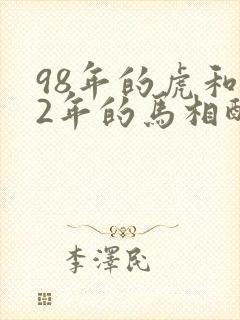 98年的虎和
2年的馬相
李澤民